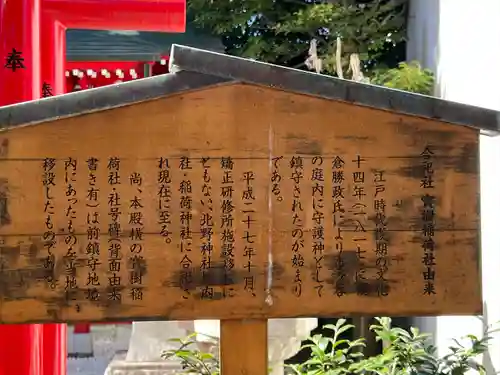 合祀社 寳樹稲荷社由来
江戸時代後期の文化
十四年(一八一七)に
倉勝政氏によりも
の庭内に守護神として
鎮守されたのが始まり
である。
平成二十七年十月、
矯正研修所施設移
ともない、北野神社
社・稲荷神社に合祀さ
れ現在に至る。
尚、本殿横の寳樹稲
荷社・社号碑(背面由来
書き有)は前鎮守地境
内にあったものを当地に
移設したものである。
奉
奉